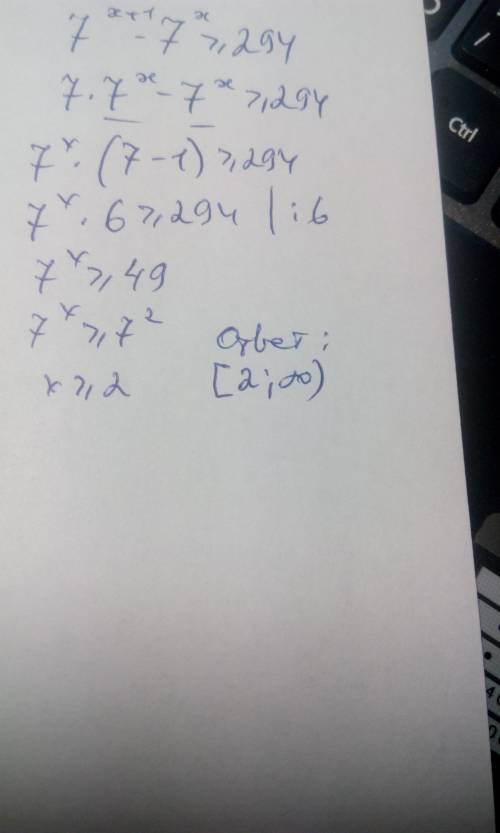 7^{x+1} - 7^x ⩾ 294
7 · 7^x - 7^x ⩾ 294
7^x · (7 - 1) ⩾ 294
7^x · 6 ⩾ 294 | : 6
7^x ⩾ 49
7^x ⩾ 7^2
x ⩾ 2
Ответ:
[2; ∞)
Ctrl